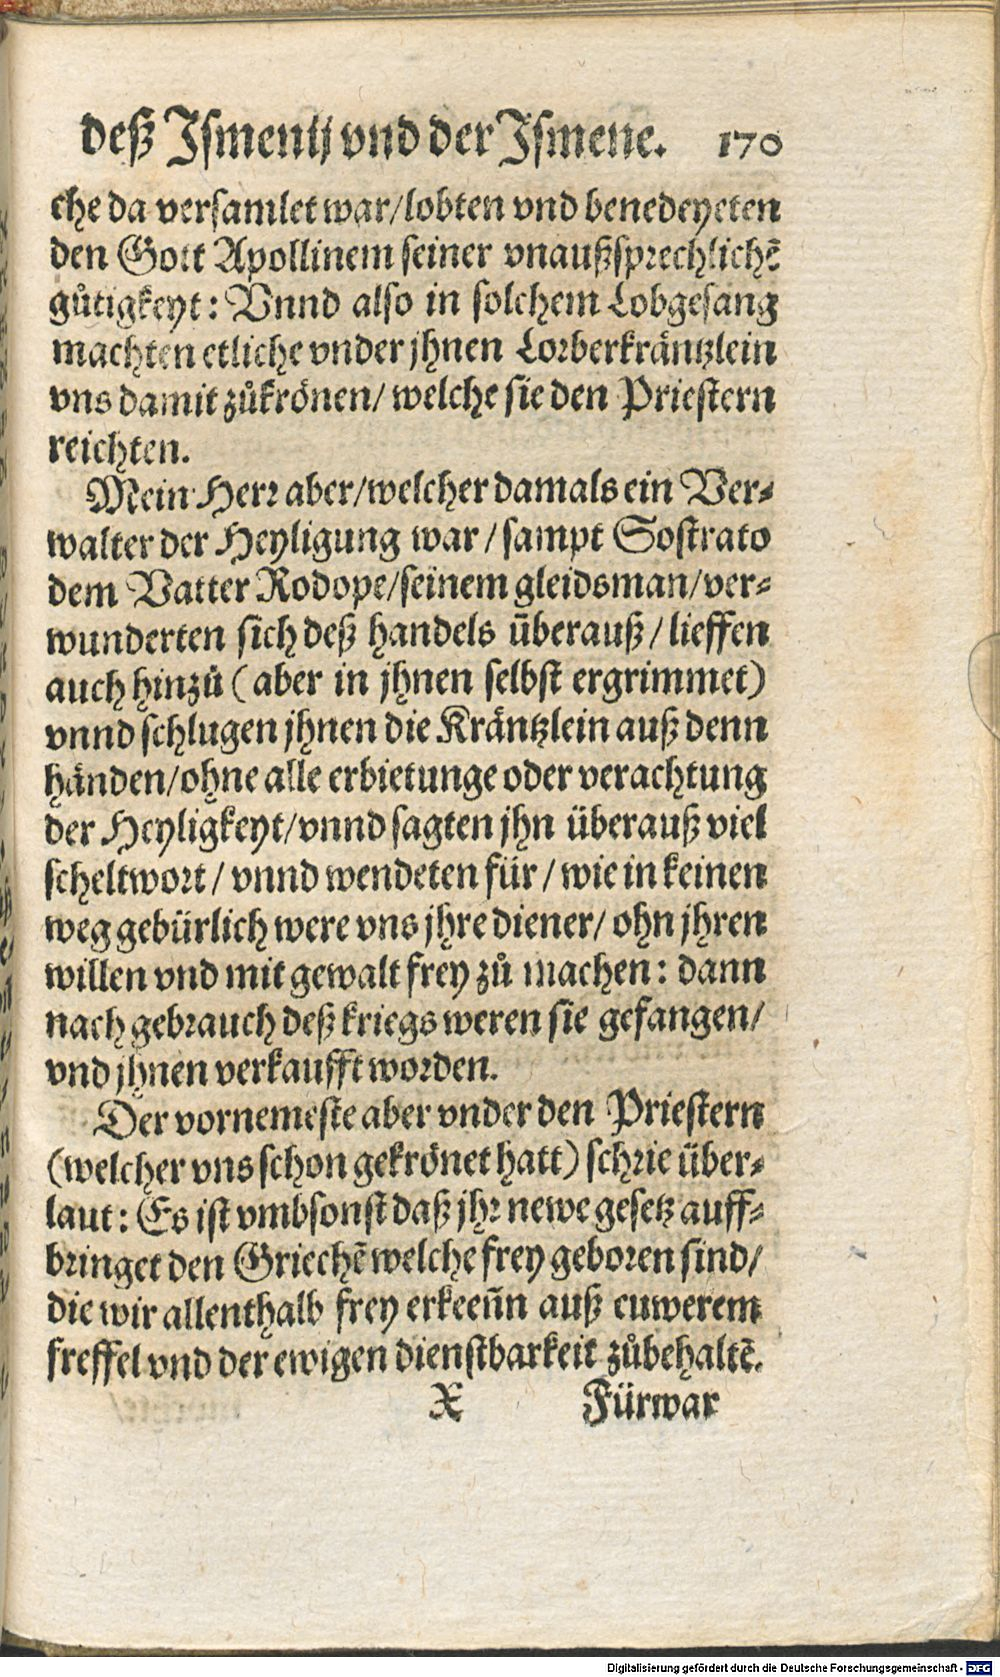 deß Ismenij vnd der Ismene. 170
che da versamlet war/lobten vnd benedeyeten
den Gott Apollinem seiner vnaußsprechlichẽ
gůtigkeyt: Vnnd also in solchem Lobgesang
machten etliche vnder jhnen Lorberkräntzlein
vns damit zůkrönen/ welche sie den Priestern
reichten.
Mein Herr aber/welcher damals ein Ver⸗
walter der Heyligung war/ sampt Sostrato
dem Vatter Rodope/seinem gleidsman/ver⸗
wunderten sich deß handels überauß/ lieffen
auch hinzů (aber in jhnen selbst ergrimmet)
vnnd schlugen jhnen die Kräntzlein auß denn
händen/ohne alle erbietunge oder verachtung
der Heyligkeyt/vnnd sagten jhn überauß viel
scheltwort/ vnnd wendeten für/ wie in keinen
weg gebürlich were vns jhre diener/ ohn jhren
willen vnd mit gewalt frey zů machen: dann
nach gebrauch deß kriegs weren sie gefangen/
vnd jhnen verkaufft worden.
Der vornemeste aber vnder den Priestern
(welcher vns schon gekrönet hatt) schrie über⸗
laut: Es ist vmbsonst daß jhr newe gesetz auff⸗
bringet den Griechẽ welche frey geboren sind/
die wir allenthalb frey erkeeñn auß euwerem
freffel vnd der ewigen dienstbarkeit zůbehaltẽ.
X Fürwar
Digitalisierung gefördert durch die Deutsche Forschungsgemeinschaft - DFG